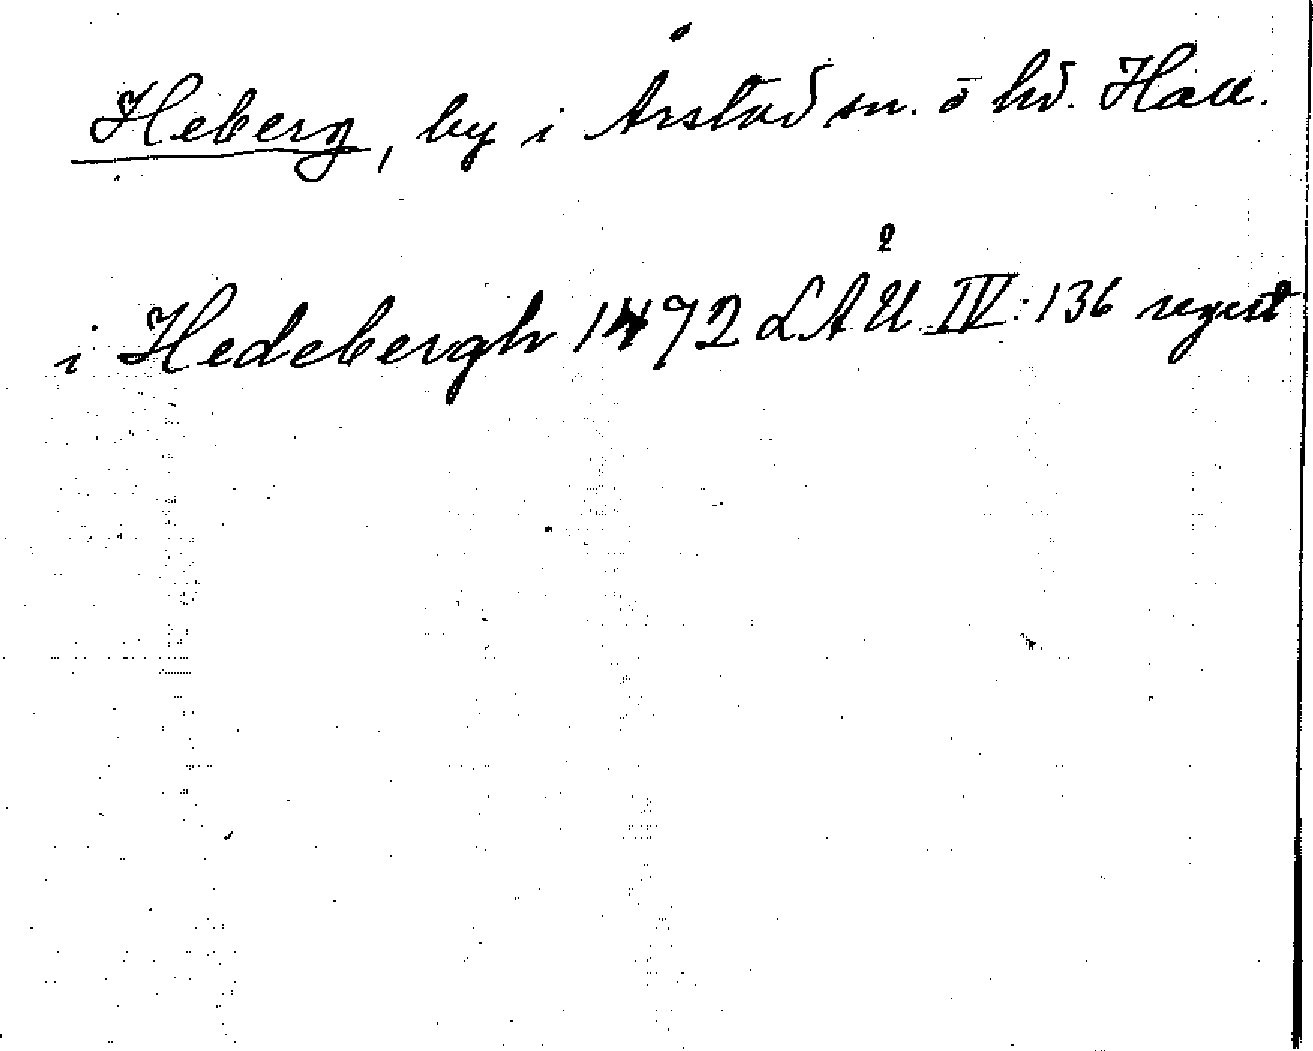 Heberg, by i Årstad sn. o hd. Hall.
i Hedebergh 1492 LÅU IV:136 regest